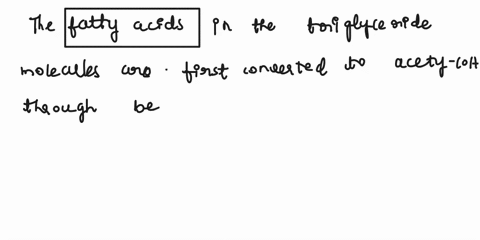 The fatty acids in the triglyceride
molecules are first converted to acety-COA
through be